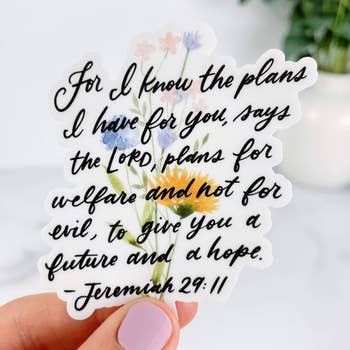 For I know the plans
I have for you, says
the LORD, plans for
welfare and not for
evil, to give you a
future and a hope.
-Jeremiah 29:11